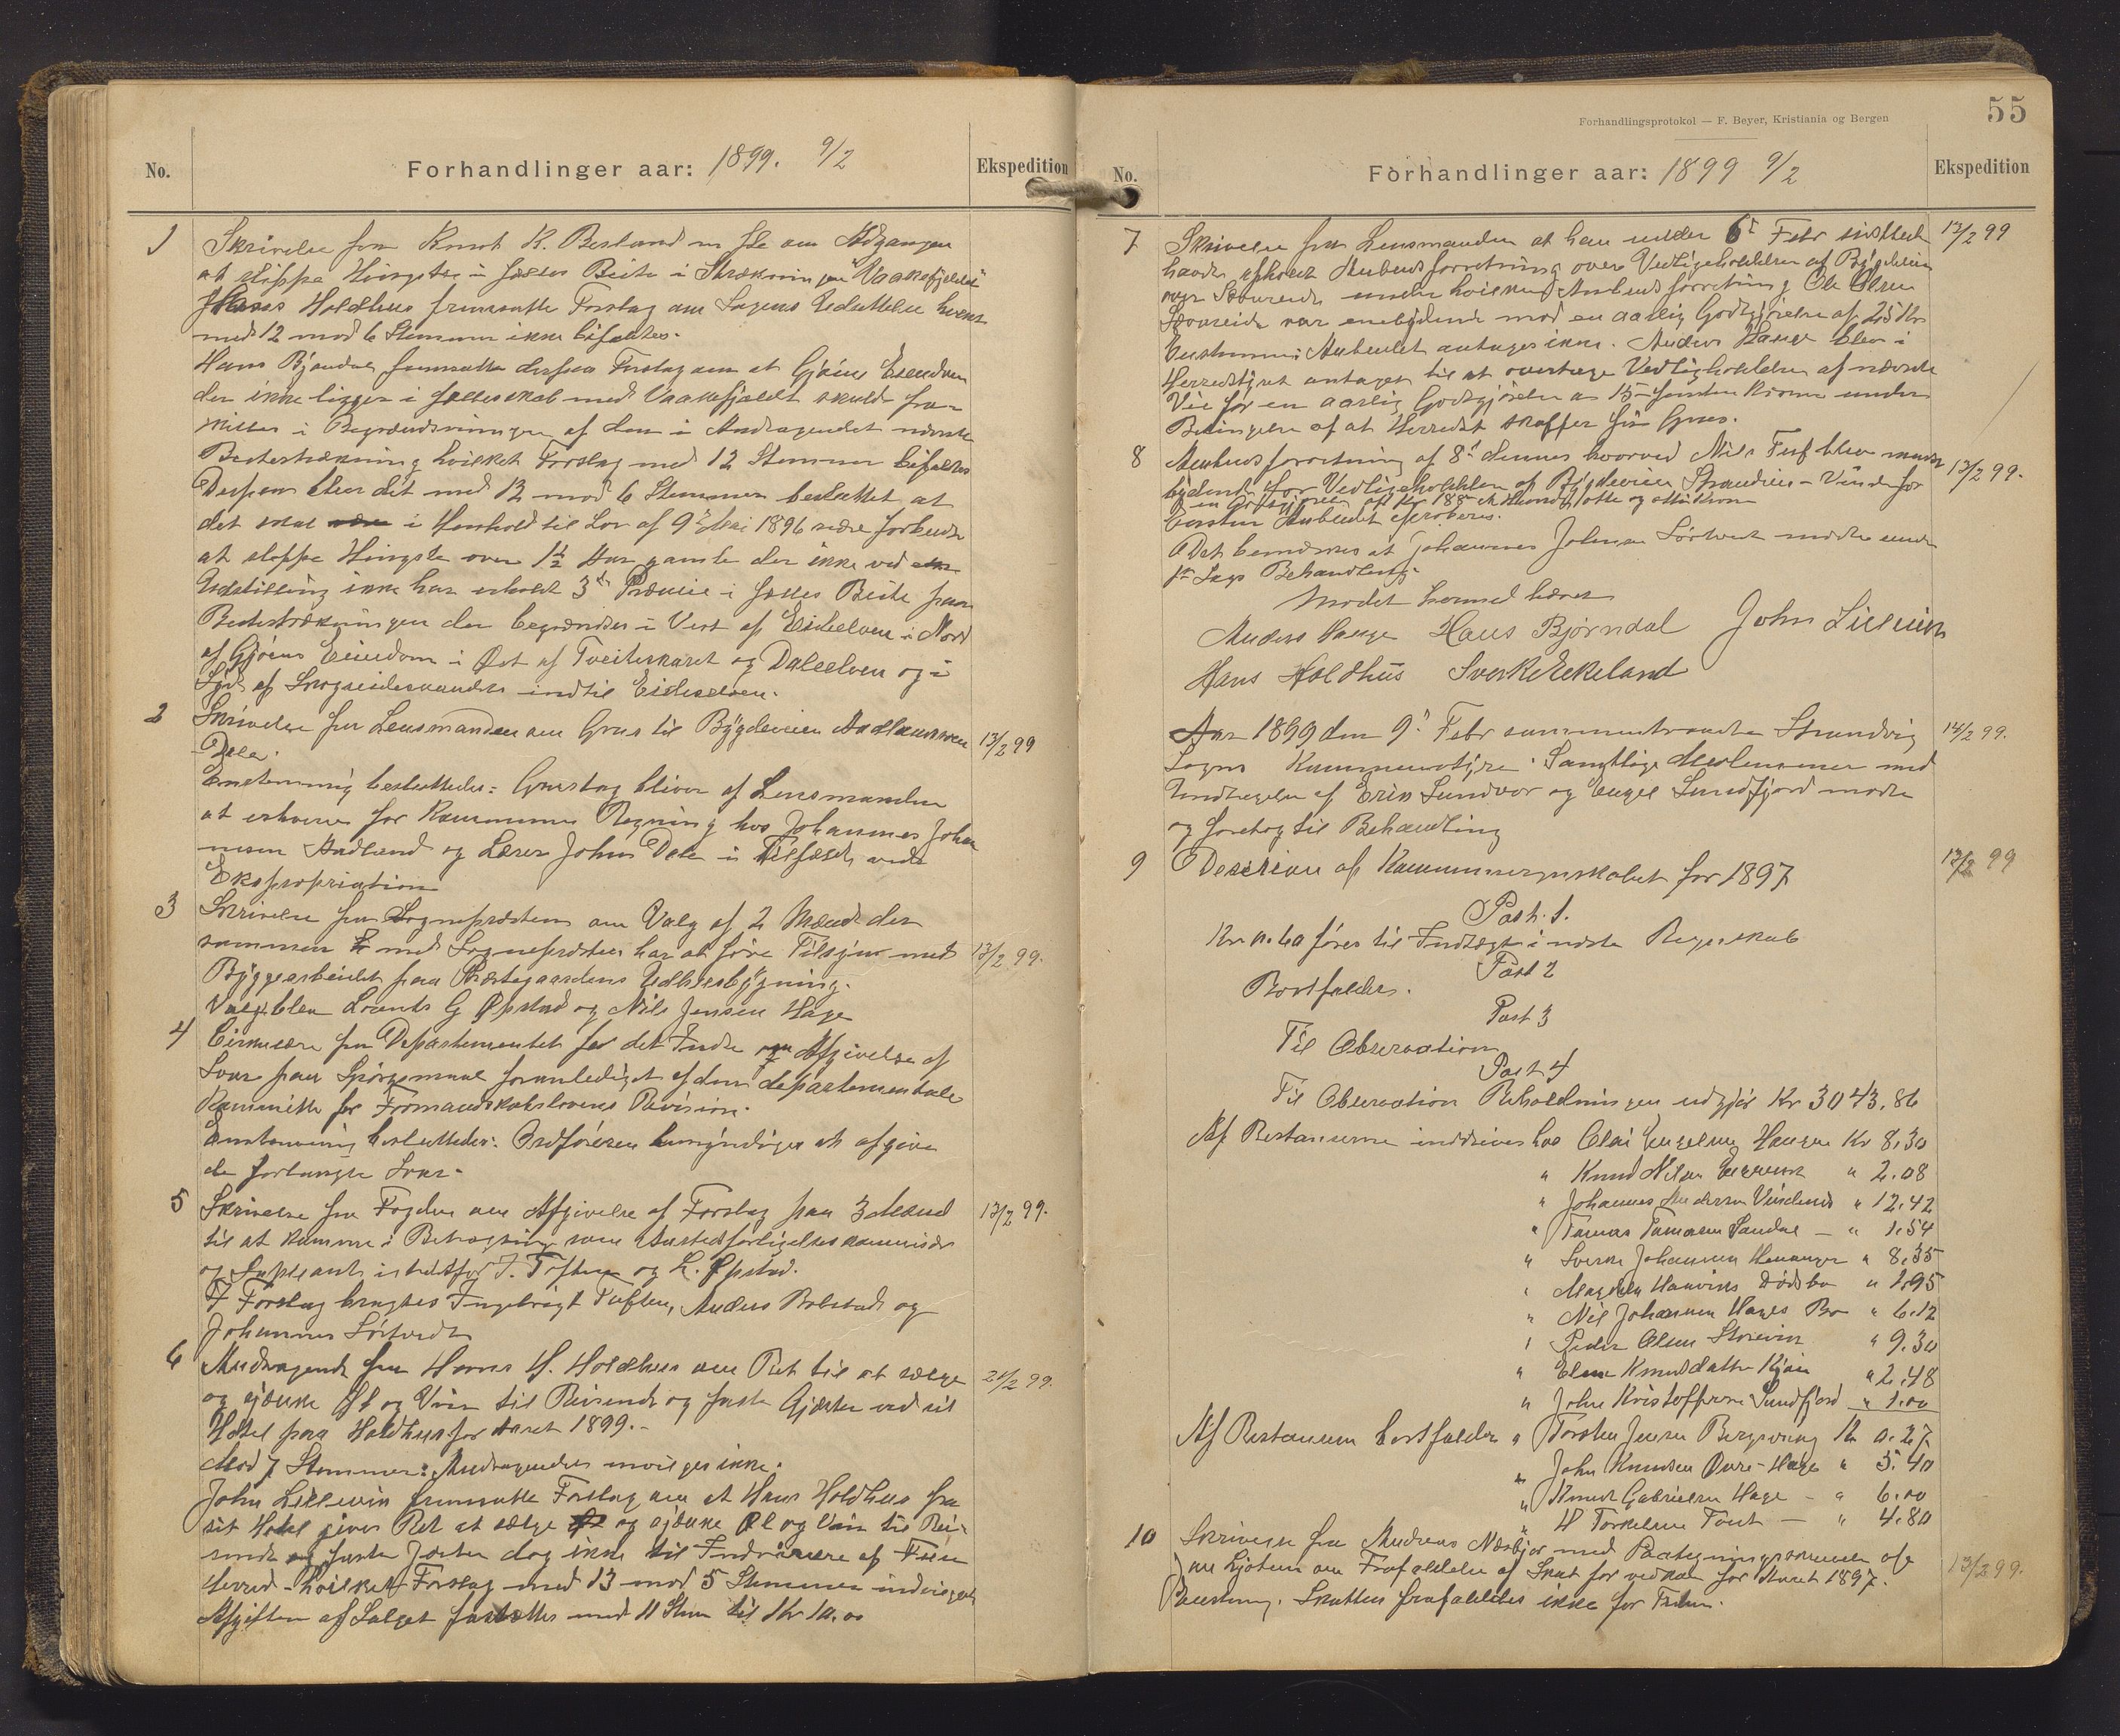 No.
Forhandlinger aar: 1899. 9/2
Ekspedition
1
Skrivelse fra Knut K. Bestand m fle om Adgangen
at slippe Hingster i fælles Beite i Strækningen "Vaaksefjeldet"
Hans Holdhus fremsatte Forslag om Sagens Udsættelse hvilket
med 12 mod 6 Stemmer ikke bifaltes.
Hans Bjøndal fremsatte derpaa Forslag om at Gjøens Eiendom
der ikke ligger i fællesskab med Vaaksfjældet skulde fra-
skilles i Begrændsningen af den i Andragendet nævnte
Beitestrækning hvilket Forslag med 12 Stemmer bifaltes
Derpaa blev det med 12 mod 6 Stemmer besluttet at
det skal i Henhold til Lov af 9de Mai 1896 være forbudt
at sloppe Hingste over 1½ Aar gamle der ikke ved
Udstilling ikke har erholdt 3die Præmie i fælles Beite paa
Beitestrækningen der begrændses i Vest af Eidselven i Nord
af Gjøens Eiendom i Øst af Tveiteskaret og Dalselven og i
Syd af Skogseidsvandet indtil Eidselven.
2
Skrivelse fra Lensmanden om Grus til Bygdeveien Aadlandsveien
Dale.
13/2 99
Enstemmig besluttedes: Grustag bliver af Lensmanden
at erhverve for Kommunens Regning hos Johannes Johan
nesen Aadland og Lærer Johns Dale i Tilfælde ved
Ekspropriation
3
Skrivelse fra Sognepresten om Valg af 2 Mænd der
sammen med Sognepresten har at føre Tilsyn med
13/2 99.
Byggearbeidet paa Præstegaardens Udhusbygning.
Valgt blev Lorents G Øpstad og Nils Jensen Hage
4
Cirkulære fra Departementet for det Indre om Afgivelse af
Svar paa Spørgsmaal foranlediget af den departementale
Kommitte for Formandskabslovens Revision.
Enstemmig besluttedes: Ordføreren bemyndiges at afgive
de forlangte Svar.
5
Skrivelse fra Fogden om Afgivelse af Forslag paa 3 Mænd
13/2 99.
til at komme i Betragtning som Anstedsforligelseskommisær
og Supleant istedetfor J. Toften og L. Øpstad.
I Forslag bragtes Ingebrigt Tuften, Anders Bolstad og
Johannes Sørtvedt
6
Andragende fra Hans H. Holdhus om Ret til at sælge
21/2 99.
og skjænke Øl og Vin til Reisende og faste Gjæster ved sit
Hotel paa Holdhus for Aaret 1899.-
Mod 7 Stemmer: Andragendet innvilges ikke.
John Lillevik fremsatte Forslag om at Hans Holdhus fra
sit Hotel gives Ret at sælge og skjænke Øl og Vin til Rei-
sende og faste Jæster dog ikke til Indvaanere af Fuse
Herred - hvilket Forslag med 13 mod 5 Stemmer indvilgedes
Afgiften af Salget fastsættes med 11 Stem til Kr 10.00
55
Forhandlingsprotokol — F. Beyer, Kristiania og Bergen
No.
Forhandlinger aar: 1899 9/2
Ekspedition
7
Skrivelse fra Lensmanden at han under 6te Febr sidstleden
13/2 99
havde afholdt Anbudsforretning over Vedligeholdelsen af Bygdeveien
over Sævareide under hvilken Anbudsforretning Ole Olsen
Sævareide var enebydende mod en aarlig Godtgjørelse af 25 Kr
Enstemmig Anbudet antages ikke. Anders Hauge blev i
Herredstyret antaget til at overtage Vedligeholdelsen af nævnte
Vei for en aarlig Godtgjørelse a 15 femten Kroner under
Betingelse af at Herredet skaffer fri Grus.
8
Anbudsforretning af 8de dennes hvorved Nils Tuft blev mindst
13/2 99.
bydende for Vedligeholdelse af Bygdeveien Strandvik - Vinde for
en Godtgjørelse aft Kr 188 et Hundrede otte og otti Kroner
Enstem Anbudet aproberes.
Det bemærkes at Johannes Johnsen Sørtvedt mødte under
1ste Sags Behandling.
Mødet hermed hævet
Anders Hauge Hans Bjørndal John Lillevik
Hans Holdhus Sverke Ekeland
Aar 1899 den 9de Febr sammentraadte Strandvig
14/2 99.
Sogns Kommunestyre. Samtlige Medlemmer med
Undtagelse af Erik Sundvor og Engel Sundfjord mødte
og foretog til Behandling
9
Decision af Kommuneregnskabet for 1897
13/2 99
Post 1.
Kr 0.60 føres til Indtægt i næste Regnskab
Post 2
Bortfalder.
Post 3
Til Observation
Post 4
Til Observation Beholdningen udgjør Kr 3043.86
Af Restanserne inddrives hos Olai Engelsen Haugen Kr 8.30
" Knud Nilsen " 2.08
" Johannes Andersen Vindenes " 12.42
" Tomas Tomassen Sandal — " 1.54
" Sverke Johannesen Henanger " 8.35
" Magdela Haaviks Dødsbo " 2.95
" Nil Johannesen Hages Bo " 6.12
" Peder Olsen Storevik " 9.30
" Elen Knudsdatter Kjøn " 2.48
" John Kristoffersen Sundfjord " 1.00
Af Restansen bortfalder " Torsten Jensen Bergsvaag Kr 0.27
" John Knudsen Øvre-Hage " 5.40
" Knut Gabrielsen Hage — " 6.00
" H Torkelsen Tveit — " 4.80
10
Skrivelse fra Andreas Nesbjør med Paategningsskrivelse af
Ljotun om Frafaldelse af Skat for vedkom for Aaret 1897.
13/2 99.
Skatten frafaldtes ikke for Tiden.